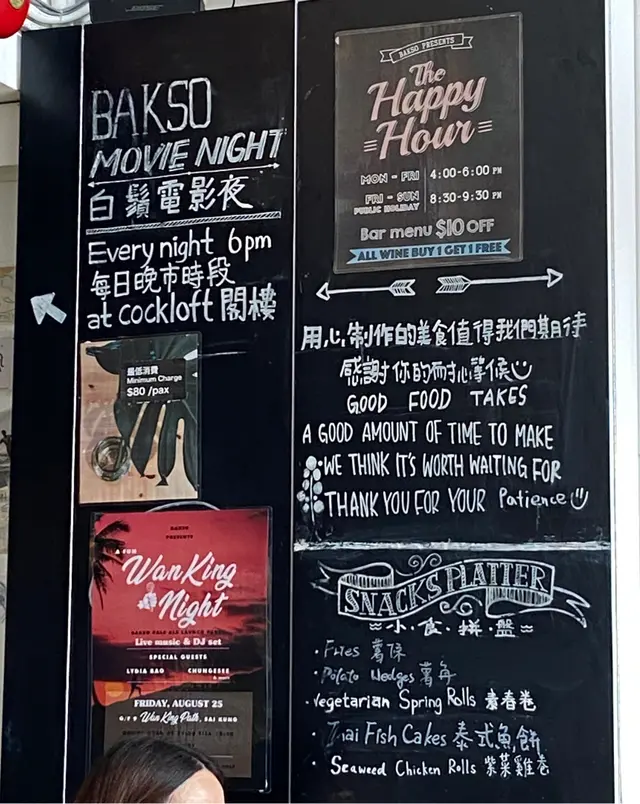 BAKSO
MOVIE NIGHT
白鬚電影夜
Every night 6pm
每日晚市時段
at cockloft 閣樓
最低消費
Minimum Charge
$80 /pax
BAKSO
PRESENTS
A FUN
Wan King
Night
Live music & DJ set
SPECIAL GUESTS
LYDIA BAO CHUNGSEE
& more
FRIDAY, AUGUST 25
G/F 9 Wan King Path, SAI KUNG
BAKSO PRESENTS
The
Happy
Hour
MON - FRI 4:00-6:00 PM
FRI - SUN 8:30-9:30 PM
PUBLIC HOLIDAY
Bar menu $10 OFF
ALL WINE BUY 1 GET 1 FREE
用心制作的美食值得我們期待
感謝你的耐心等候
GOOD FOOD TAKES
A GOOD AMOUNT OF TIME TO MAKE
WE THINK IT'S WORTH WAITING FOR
THANK YOU FOR YOUR Patience
SNACKS PLATTER
小·食·拼·盤
·Fries 薯條
·Potato Wedges 薯角
·Vegetarian Spring Rolls 素春卷
·Thai Fish Cakes 泰式魚餅
·Seaweed Chicken Rolls 紫菜雞卷